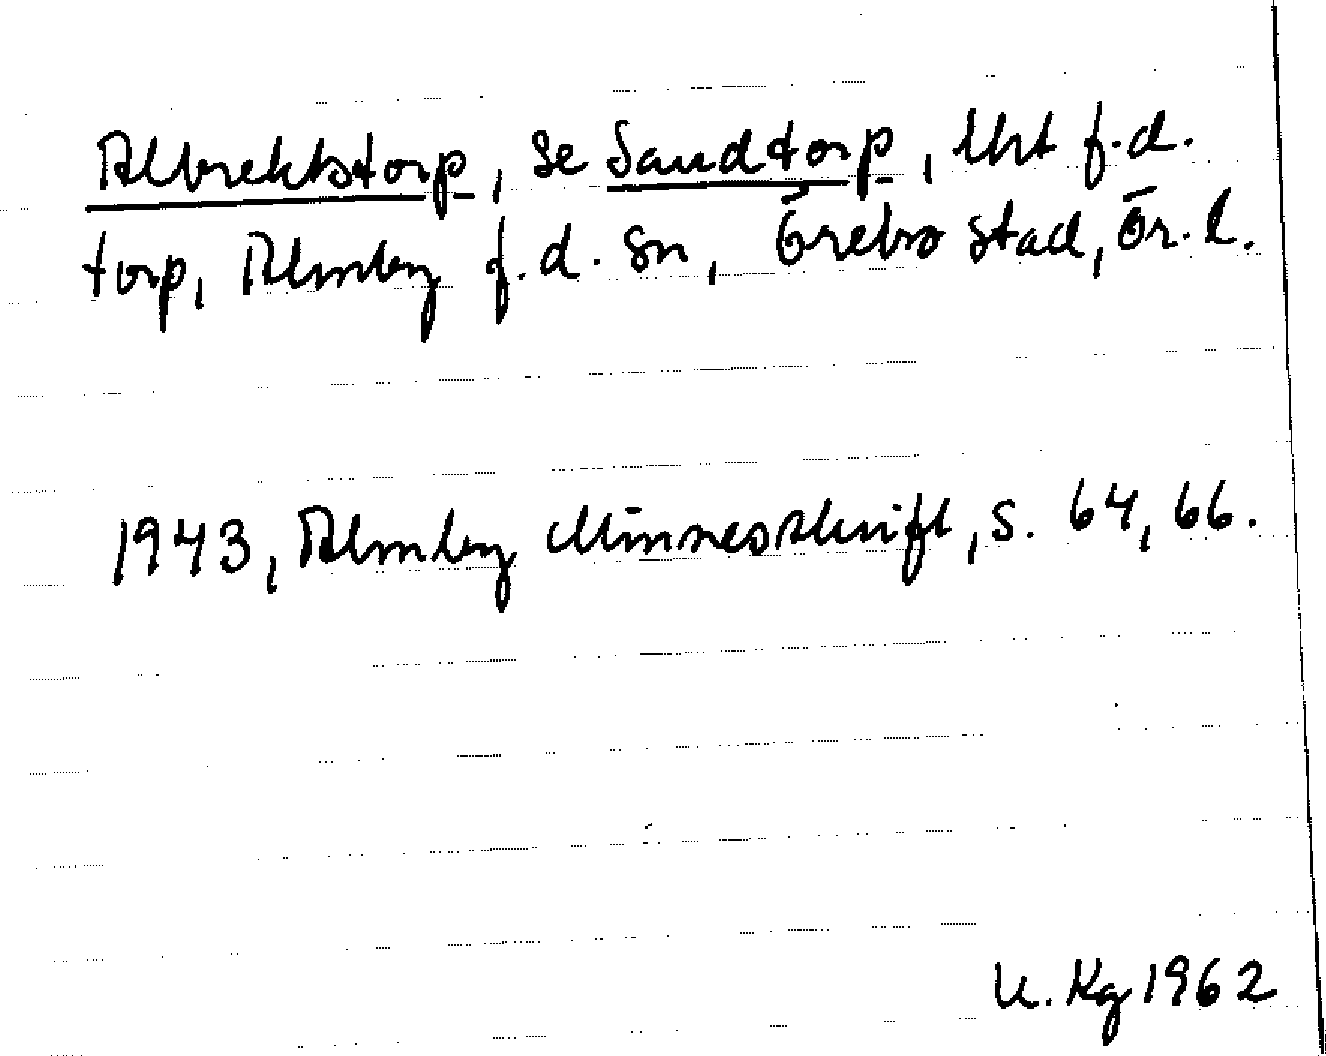 Albrektstorp, se Sandtorp, Urt f.d.
torp, Almby f.d. sn, Örebro stad, Ör. l.
1943, Almby Minnesskrift, s. 64, 66.
U. Kg 1962